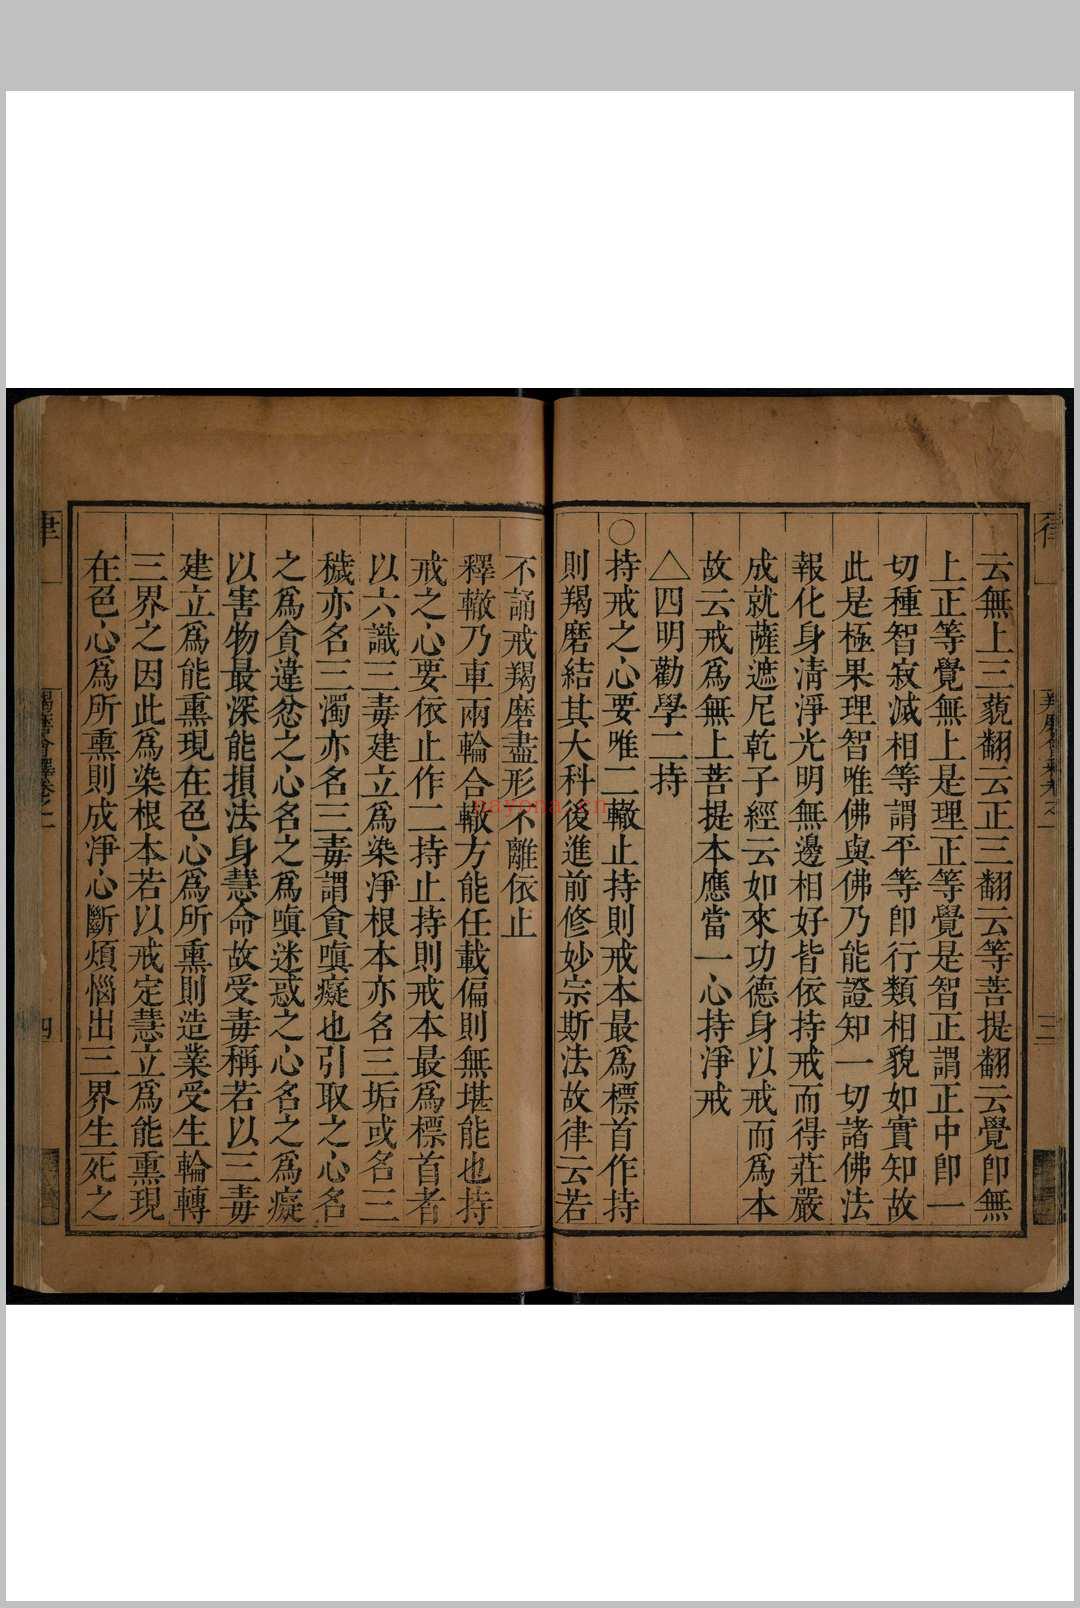 云無上三藐翻云正三翻云等菩提翻云覺卽無
上正等覺無上是理正等覺是智正謂正中卽一
切種智寂滅相等謂平等卽行類相貌如實知故
此是極果理智唯佛與佛乃能證知一切諸佛法
報化身清淨光明無邊相好皆依持戒而得莊嚴
成就薩遮尼乾子經云如來功德身以戒而爲本
故云戒爲無上菩提本應當一心持淨戒
△四明勸學二持
○持戒之心要唯二轍止持則戒本最爲標首作持
則羯磨結其大科後進前修妙宗斯法故律云若
不誦戒羯磨盡形不離依止
釋轍乃車兩輪合轍方能任載偏則無堪能也持
戒之心要依止作二持止持則戒本最爲標首者
以六識三毒建立爲染淨根本亦名三垢或名三
穢亦名三濁亦名三毒謂貪嗔癡也引取之心名
之爲貪違忿之心名之爲嗔迷惑之心名之爲癡
以害物最深能損法身慧命故受毒稱若以三毒
建立爲能熏現在色心爲所熏則造業受生輪轉
三界之因此爲染根本若以戒定慧立爲能熏現
在色心爲所熏則成淨心斷煩惱出三界生死之
律
三
律
羯磨會釋卷之一
四
nayona.cn